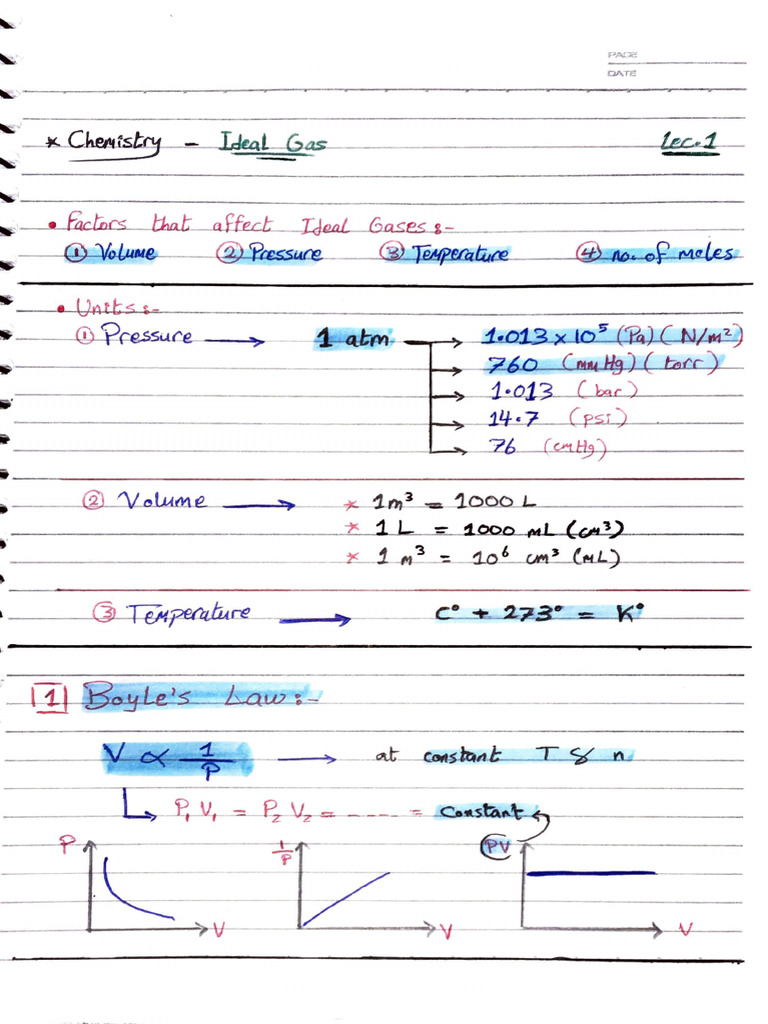 PAGE
DATE
* Chemistry - Ideal Gas Lec.1
• Factors that affect Ideal Gases:-
① Volume ② Pressure ③ Temperature ④ no. of moles
• Units:-
① Pressure → 1 atm → 1.013 x 10⁵ (Pa) (N/m²)
→ 760 (mmHg) (torr)
→ 1.013 (bar)
→ 14.7 (psi)
→ 76 (cmHg)
② Volume → * 1m³ = 1000 L
* 1 L = 1000 mL (cm³)
* 1 m³ = 10⁶ cm³ (mL)
③ Temperature → C° + 273° = K°
1 Boyle's Law:-
V ∝ 1/P → at constant T & n
↳ P₁ V₁ = P₂ V₂ = ---- = constant
P V
1/P V
PV V